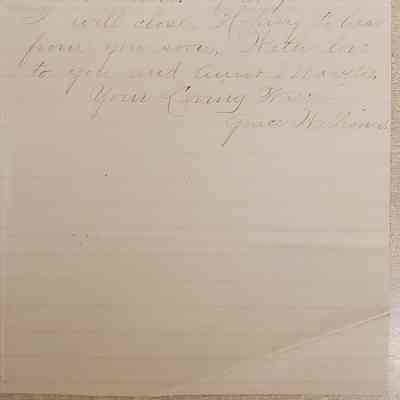 I will close. Hoping to hear
from you soon, With love
to you and Aunt
Your Loving
Grace Williams